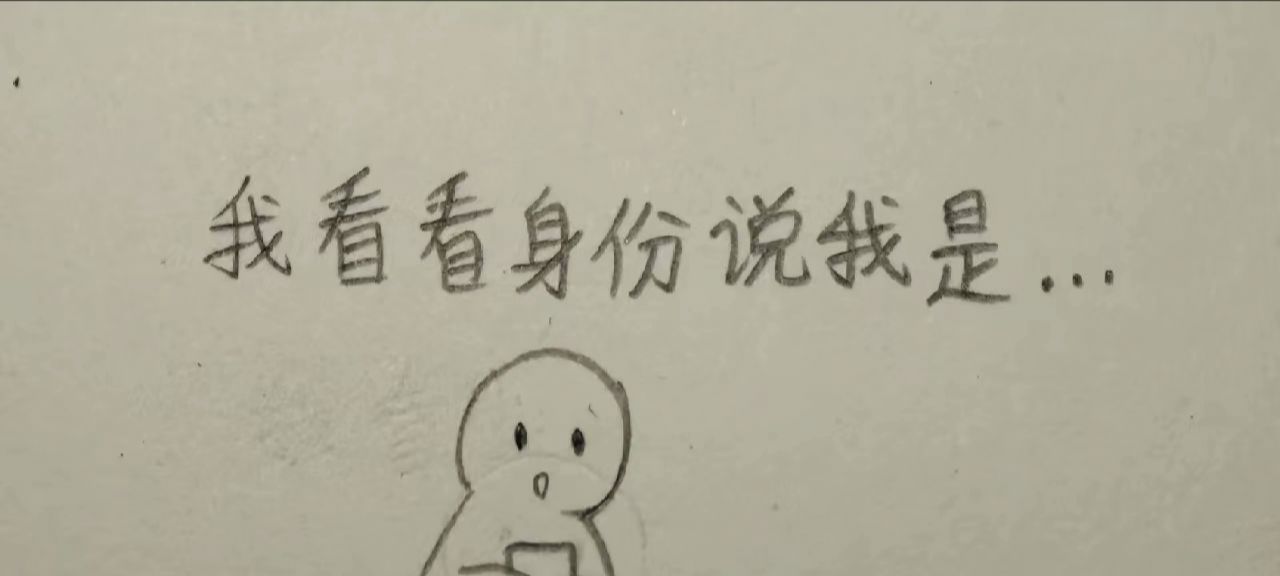 我看看身份说我是...